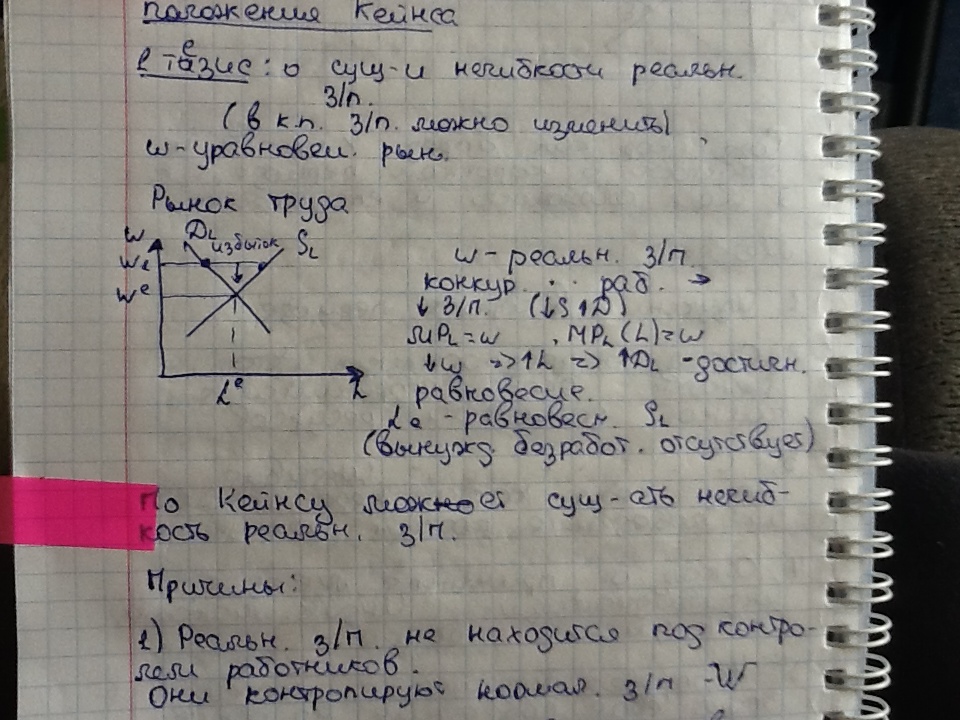 положения Кейнса
1 тезис: о сущ-и негибкости реальн.
з/п.
(в к.п. з/п. можно изменить)
w-уравновеш. рын.
Рынок труда
w DL избыток SL
w1
we
Le L
w - реальн. з/п
конкур. раб. →
↓ з/п. (↓S ↑D)
MPL = w , MPL (L) = w
↓w => ↑L => ↑DL - достиген.
равновесие.
Le - равновесн. SL
(вынужд. безработ. отсутствует)
По Кейнсу может сущ-ать негиб-
кость реальн. з/п.
Причины:
1) Реальн. з/п. не находится под контро-
лем работников.
Они контролируют номал. з/п - W